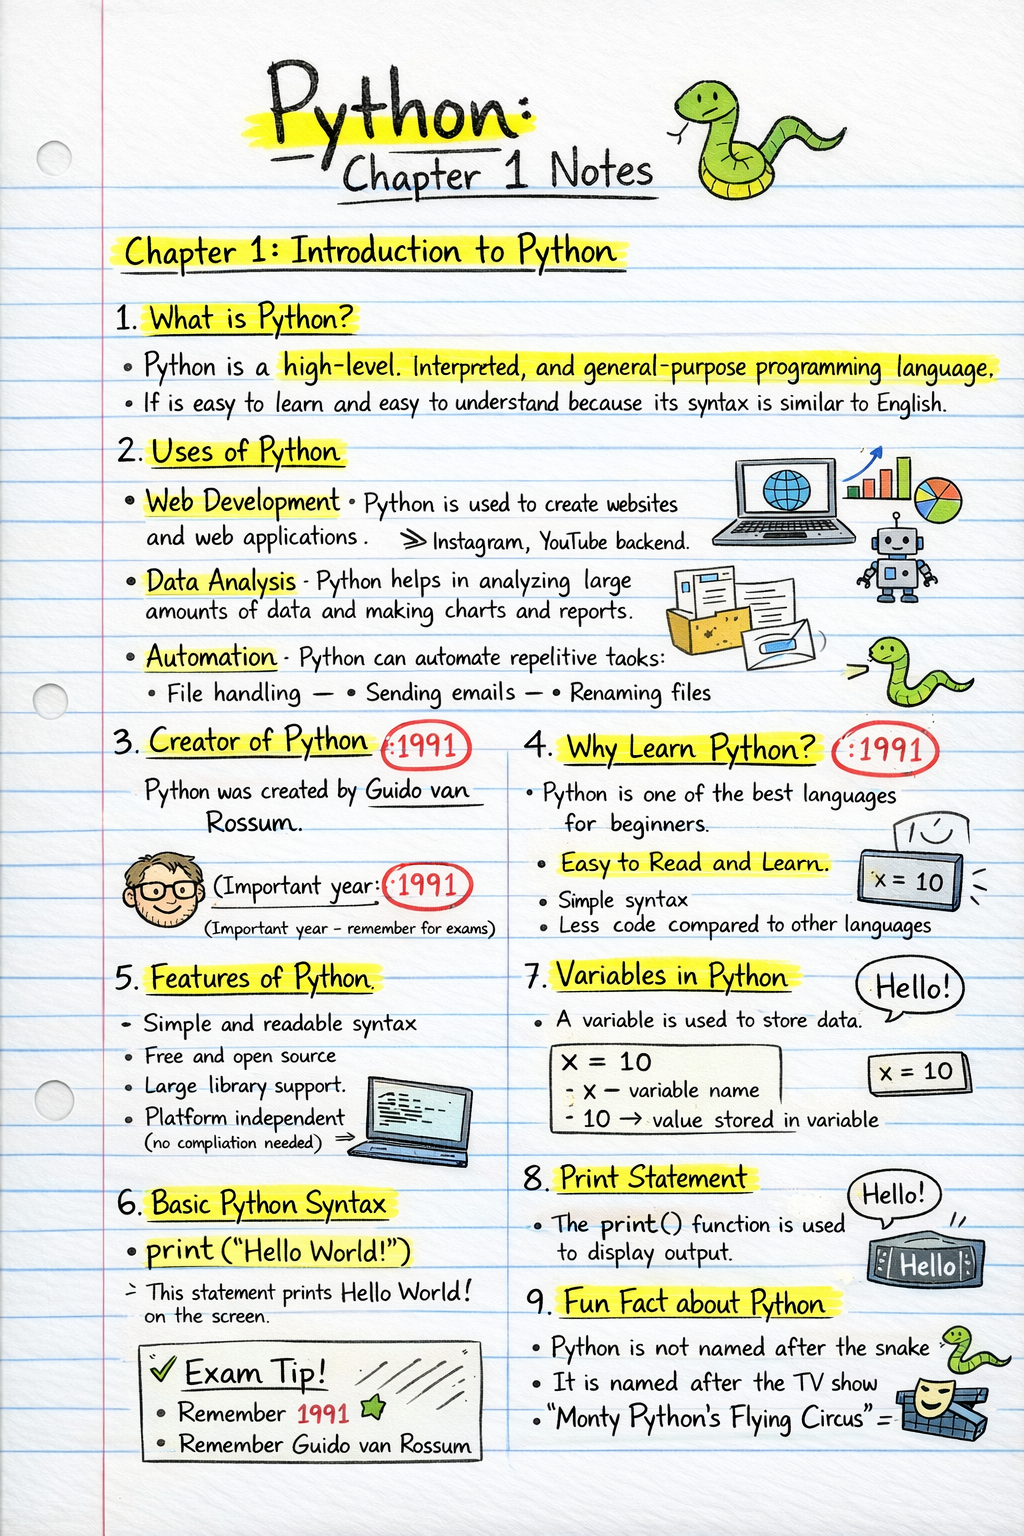 Python:
Chapter 1 Notes
Chapter 1: Introduction to Python
1. What is Python?
• Python is a high-level. Interpreted, and general-purpose programming language.
• If is easy to learn and easy to understand because its syntax is similar to English.
2. Uses of Python
• Web Development • Python is used to create websites
and web applications. ⪢ Instagram, YouTube backend.
• Data Analysis - Python helps in analyzing large
amounts of data and making charts and reports.
• Automation - Python can automate repelitive taoks:
• File handling — • Sending emails — • Renaming files
3. Creator of Python :1991
Python was created by Guido van
Rossum.
(Important year: :1991
(Important year - remember for exams)
4. Why Learn Python? :1991
• Python is one of the best languages
for beginners.
• Easy to Read and Learn.
• Simple syntax
• Less code compared to other languages
x = 10
5. Features of Python.
- Simple and readable syntax
• Free and open source
• Large library support.
• Platform independent
(no compliation needed) ⇒
6. Basic Python Syntax
• print ("Hello World!")
This statement prints Hello World!
on the screen.
✓ Exam Tip!
• Remember 1991
• Remember Guido van Rossum
7. Variables in Python
Hello!
• A variable is used to store data.
x = 10
- x — variable name
- 10 → value stored in variable
x = 10
8. Print Statement
Hello!
• The print() function is used
to display output.
Hello
9. Fun Fact about Python
• Python is not named after the snake
• It is named after the TV show
• "Monty Python's Flying Circus" =